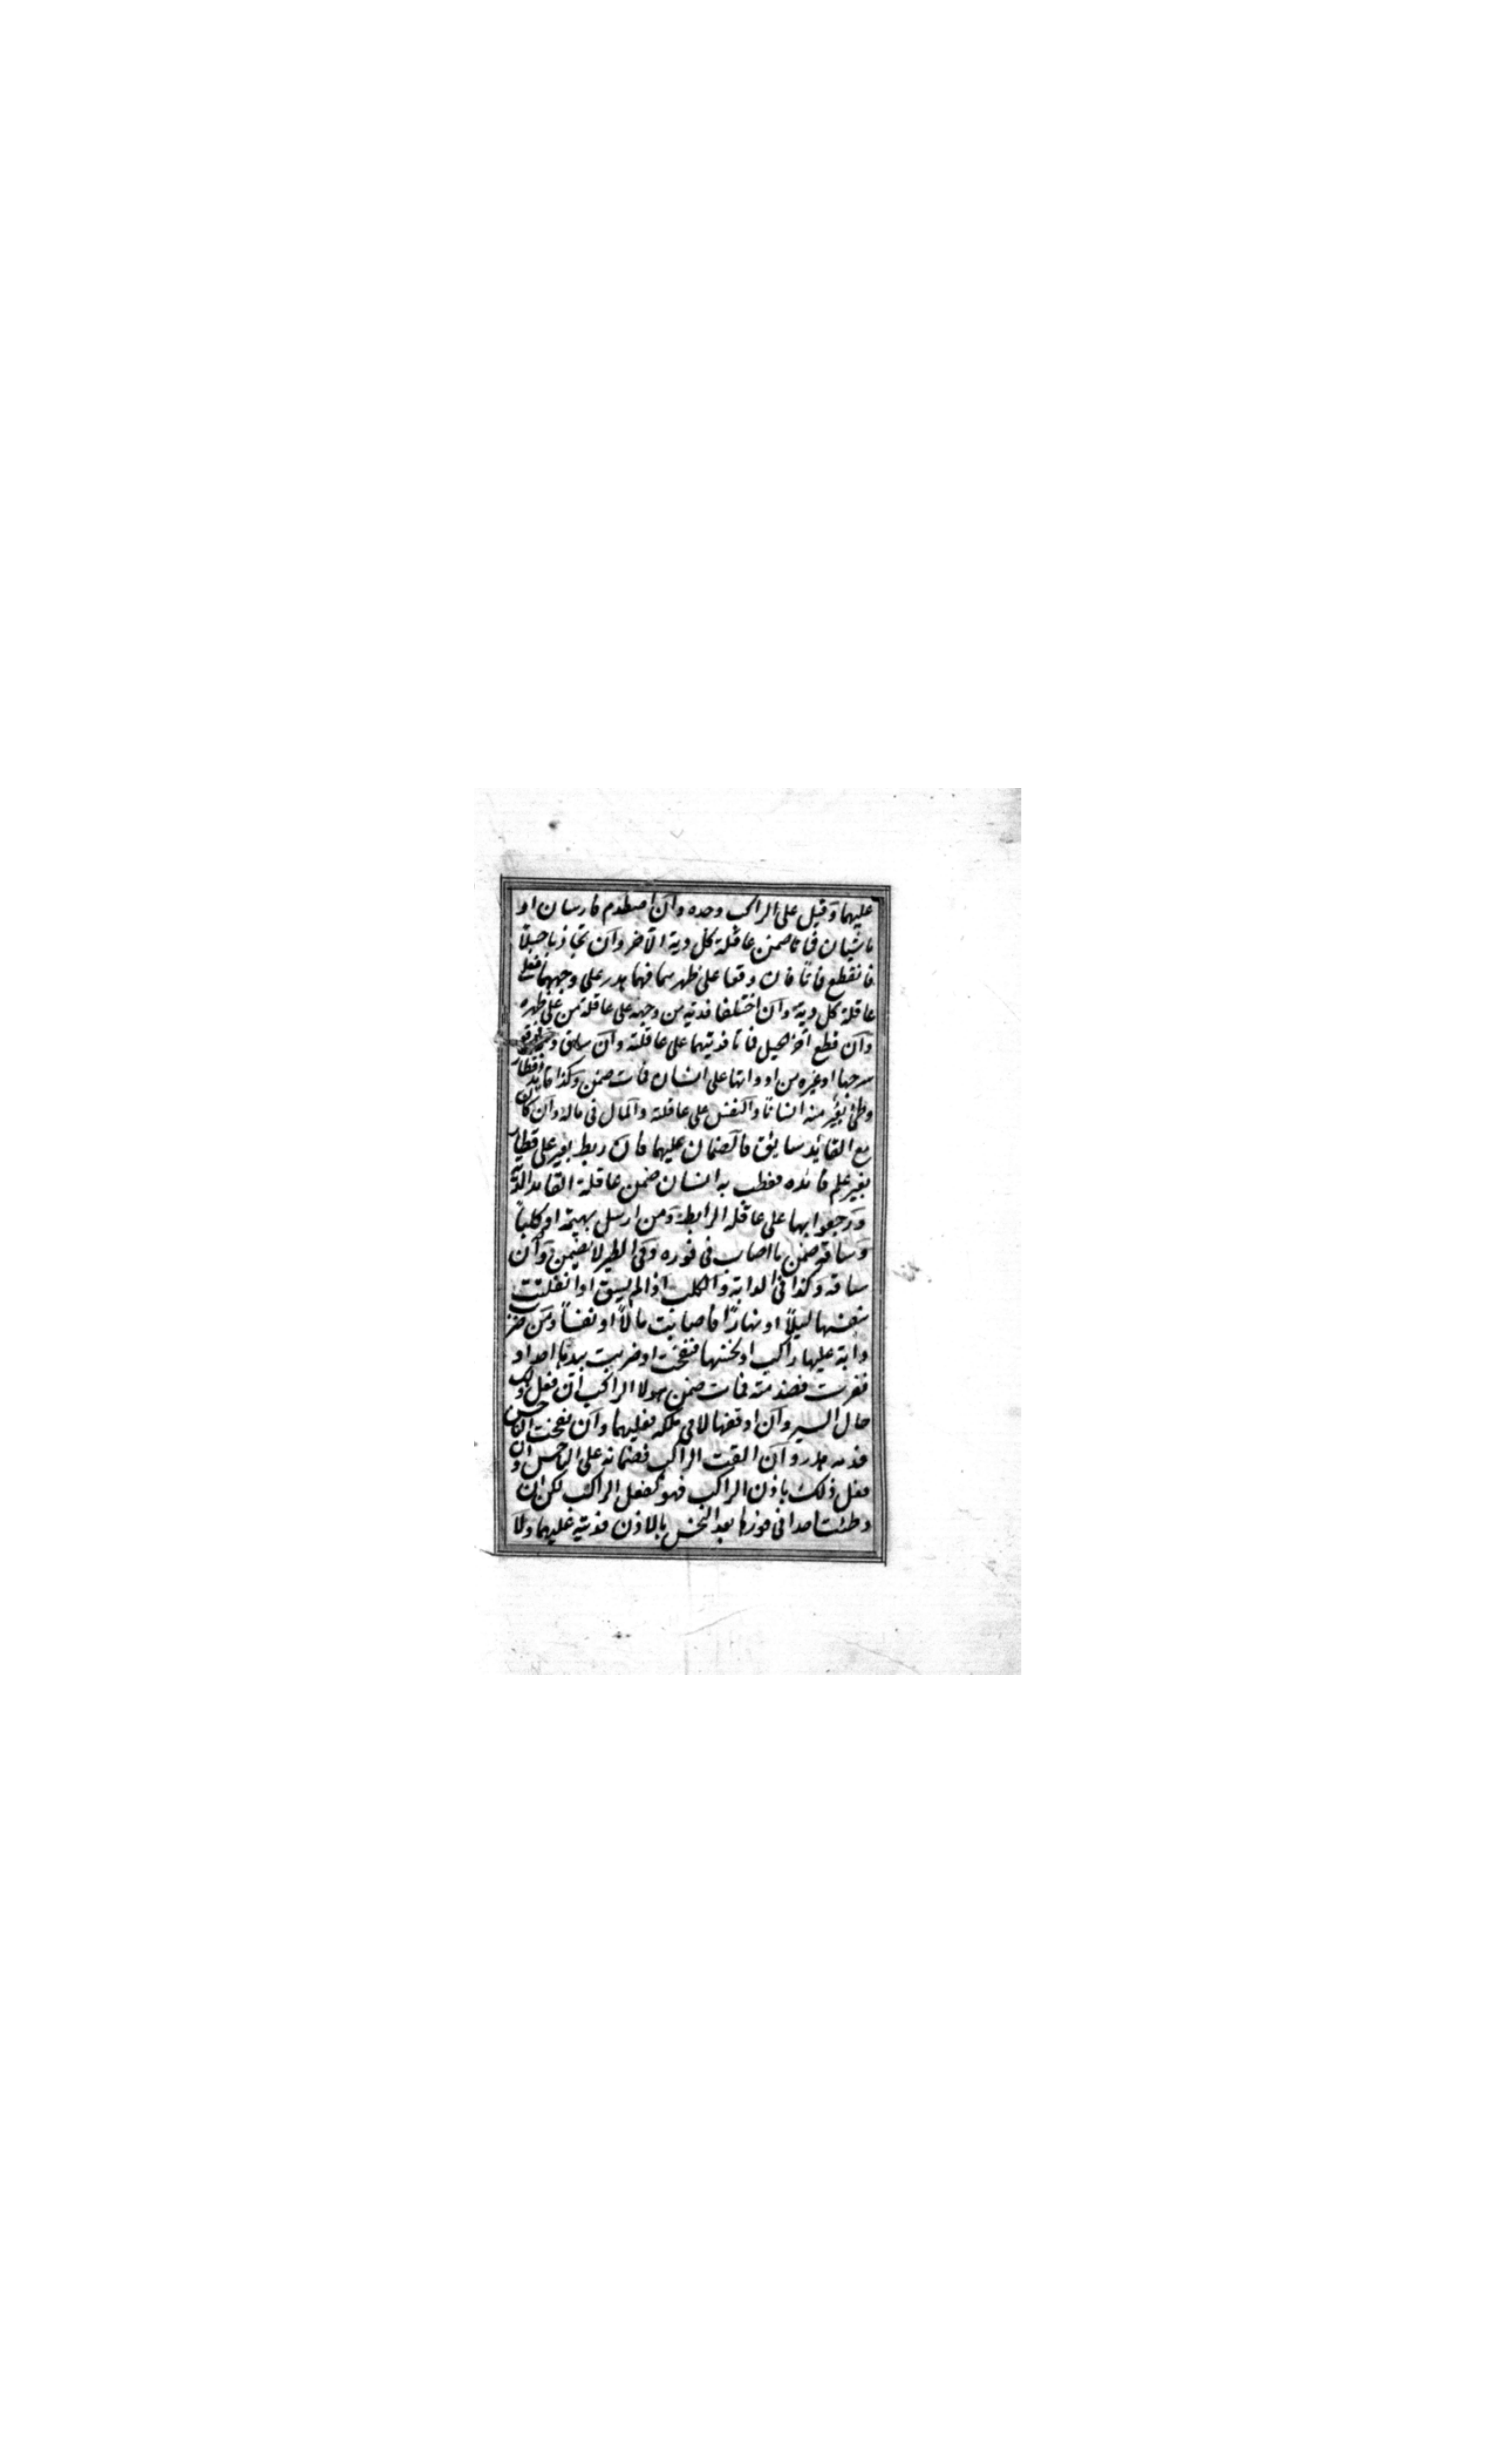 عليهما وقيل على الراكب وحده وان اصطدم فارسان او
ماشيان فماتا ضمن عاقلة كل دية الآخر وان تجاذبا حبلاً
فانقطع فماتا فان وقعا على ظهرهما فهما هدر على وجههما فعلى
عاقلة كل دية وان اختلفا فدية من وجهه على عاقلة من على ظهره
وان قطع آخر الحبل فماتا فديتهما على عاقلته وان ساق دابة فوقع
سرجها او غيره من ادواتها على انسان فمات ضمن وكذا قايد قطار
وطئ بعير منه انسانا والنفس على عاقلته والمال في ماله وان كان
مع القائد سايق فالضمان عليهما فان ربط بعير على قطار
بغير علم قائده فعطب به انسان ضمن عاقلة القايد الدية
ورجعوا بها على عاقلة الرابط ومن ارسل بهيمة او كلباً
وساقه ضمن ما اصاب في فوره وفي الطير لا يضمن وان
ساقه وكذا في الدابة والكلب اذا لم يسق او انفلتت
بنفسها ليلاً او نهاراً فاصابت مالاً او نفساً ومن ضرب
دابة عليها راكب او نخسها فنفحت او ضربت بيدها احدا او
نفرت فصدمته فمات ضمن هو لا الراكب ان فعل ذلك
حال السير وان اوقفها لا في ملكه فعليهما وان نفحت الناخس
فدمه هدر وان القت الراكب فضمانه على الناخس وان
فعل ذلك باذن الراكب فهو كفعل الراكب لكن ان
وطئت احدا في فورها بعد النخس بالاذن فديته عليهما ولا